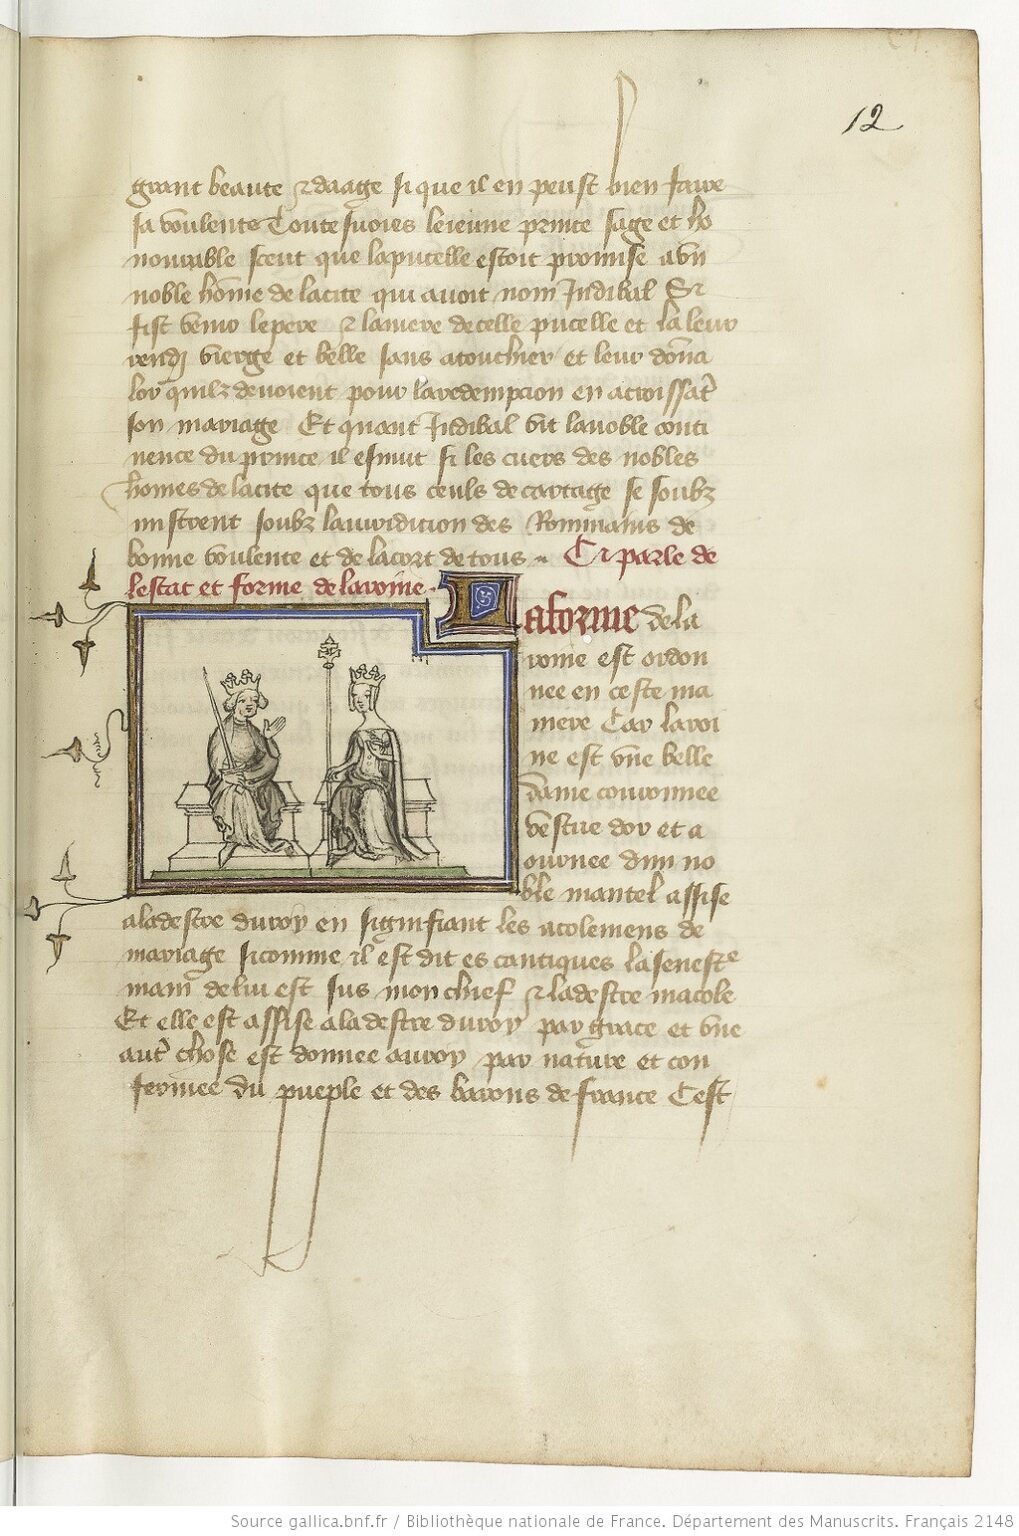 12
grant beaute ⁊ daage si que il en peust bien faire
sa voulente Toutesvoies le ieune prince sage et ho
nourable sceut que la pucelle estoit promise a vn
noble hōme de la cite qui auoit nom Indibal Si
fist venir le pere ⁊ la mere de celle pucelle et la leur
rendi vierge et belle sans atouchier et leur dōna
lor quilz deuoient pour la redempcion en acroissāt
son mariage Et quant Indibal vit la noble conti
nence du prince il esmut si les cuers des nobles
homes de la cite que tous ceuls de cartage se soubz
mistrent soubz la iuridicion des Rommains de
bonne voulente et de lacort de tous Ci parle de
lestat et forme de la roine
La forme de la
roine est ordon
nee en ceste ma
niere Car la roi
ne est vne belle
dame couronnee
vestue dor et a
ournee dun no
ble mantel assise
a la destre du roy en signifiant les acolemens de
mariage si comme il est dit es cantiques la senestᵉ
main de lui est sus mon chief ⁊ la destre macole
Et elle est assise a la destre du roy par grace et vne
autᵉ chose est donnee au roy par nature et con
fermee du pueple et des barons de france Cest
Source gallica.bnf.fr / Bibliothèque nationale de France. Département des Manuscrits. Français 2148